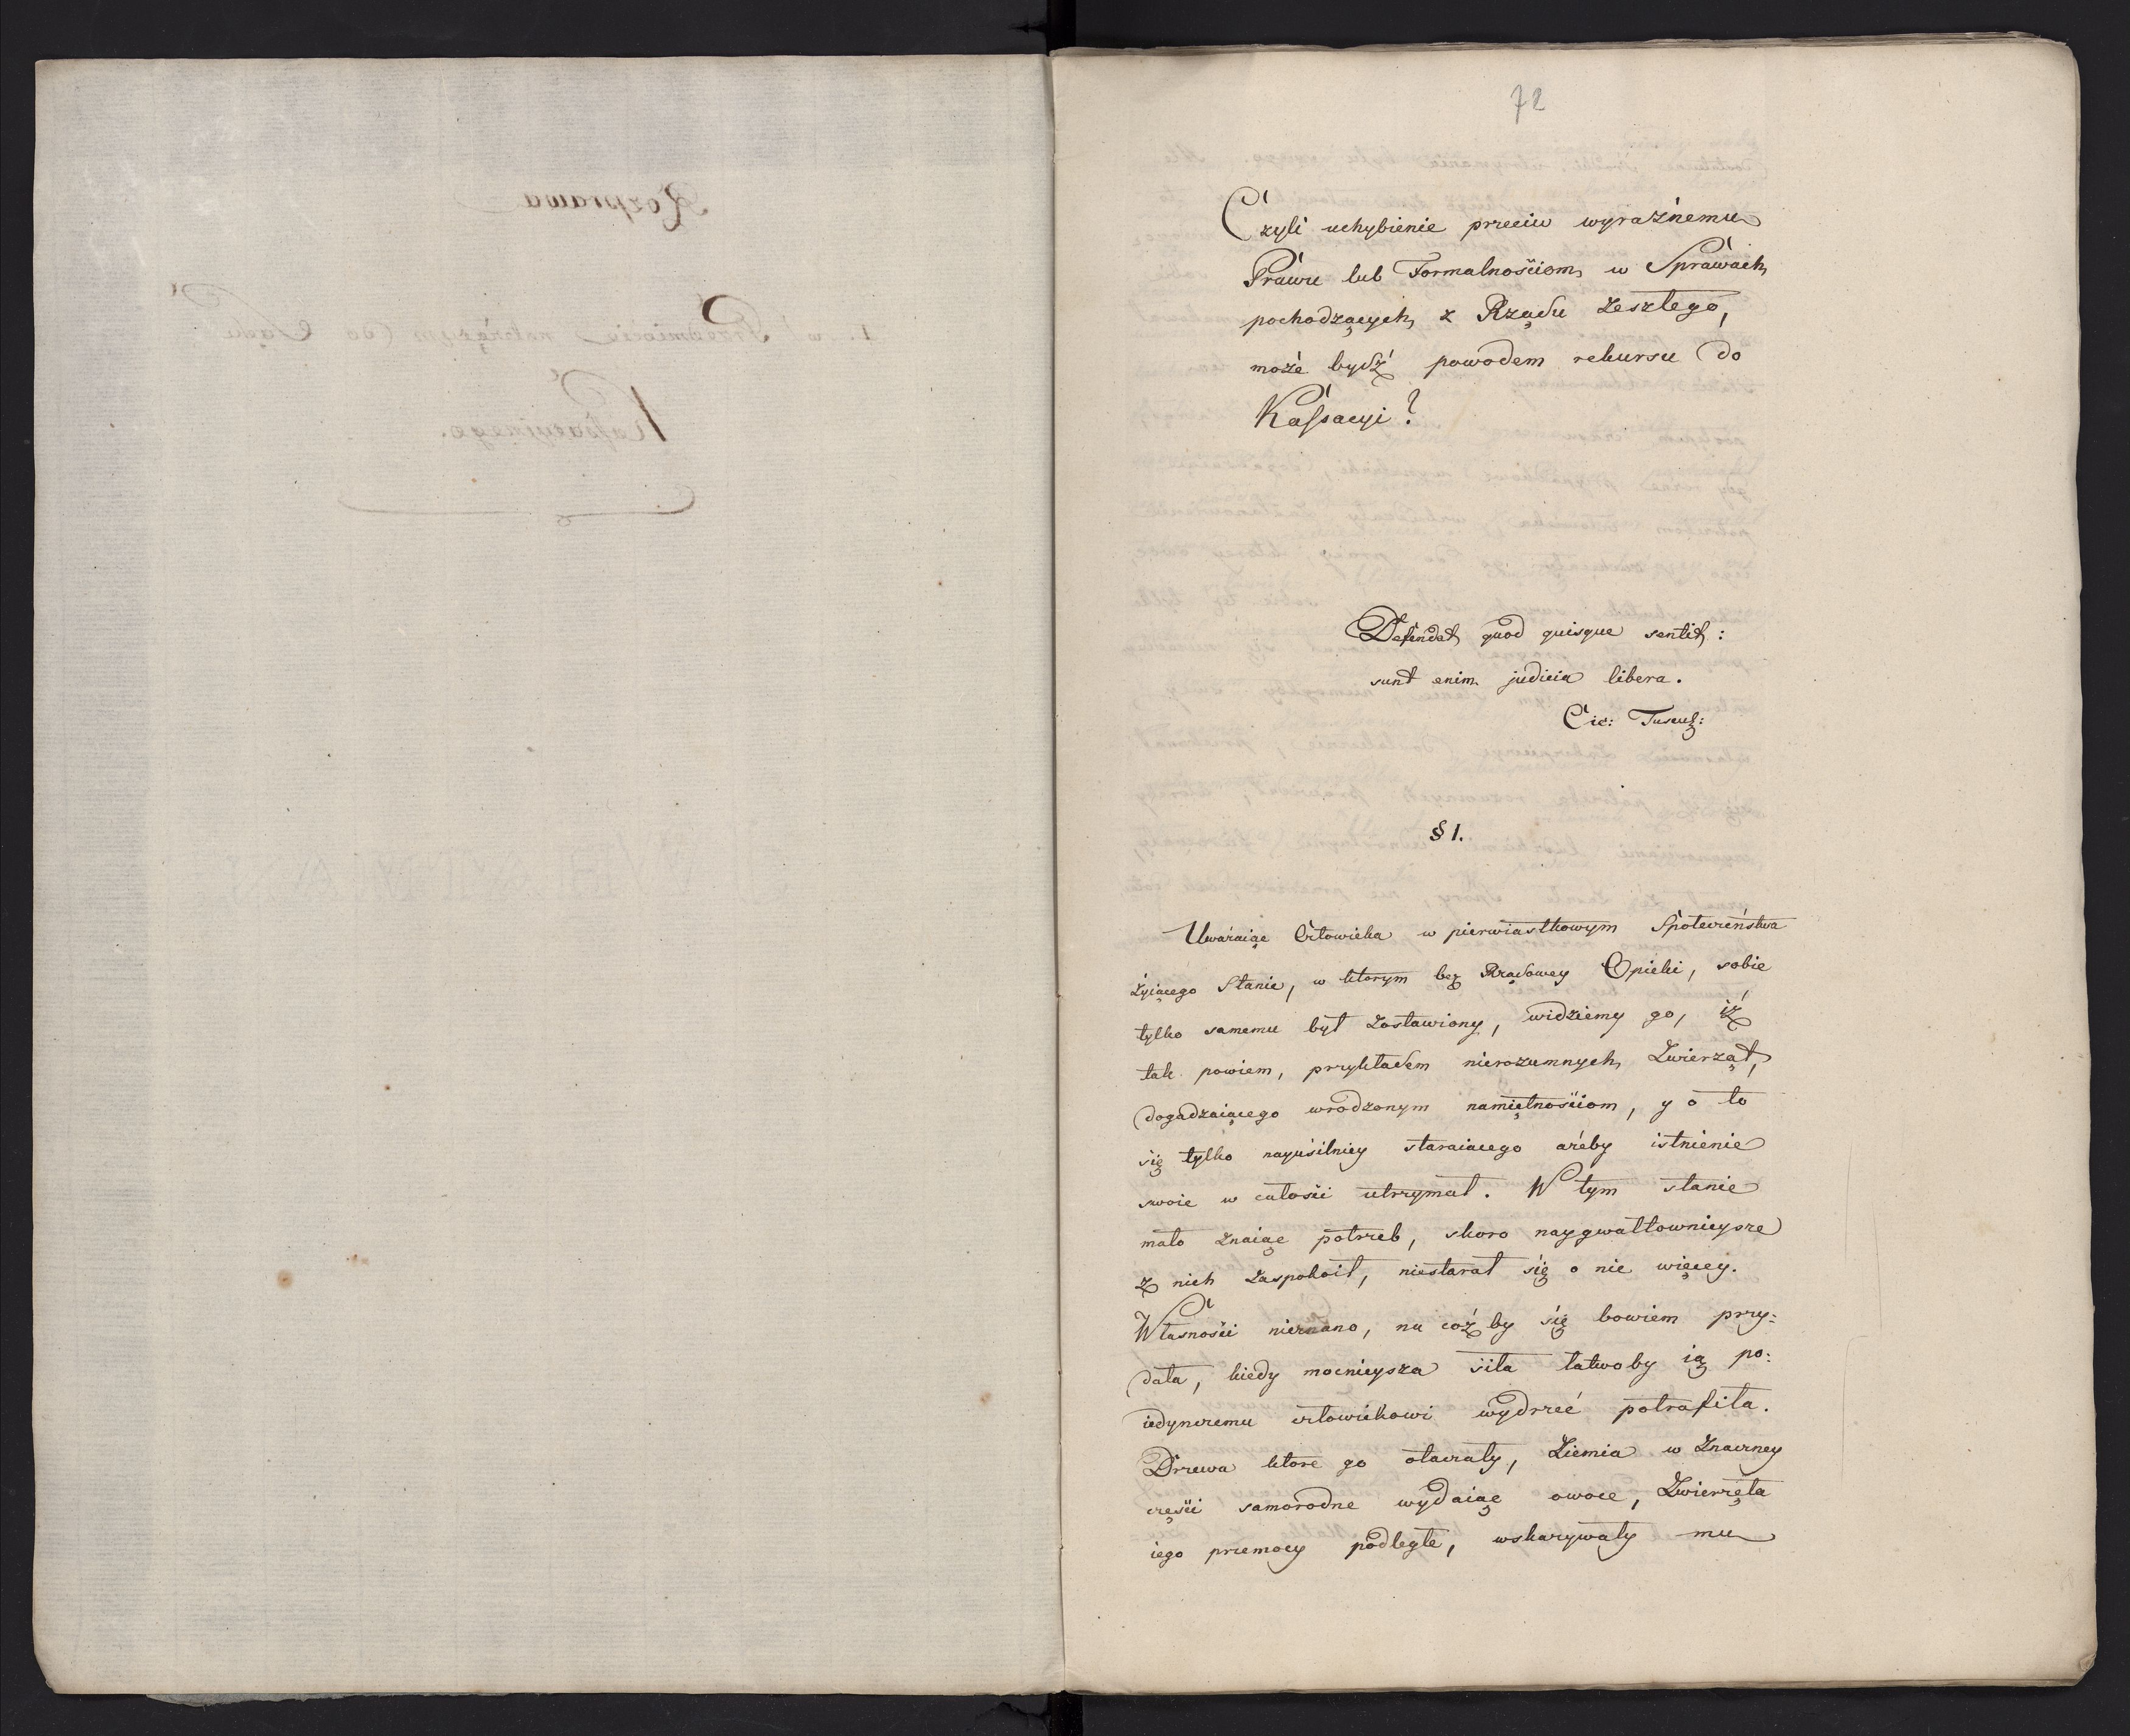 72
Czyli uchybienie przeciw wyraźnemu
Prawu lub Formalnościom w Sprawach
pochodzących z Rządu Zeszłego,
może bydź powodem rekursu do
Kassacyi?
Defendat quod quisque sentit:
sunt enim judicia libera.
Cic: Tuscul:
§ 1.
Uważaiąc Człowieka w pierwiastkowym Społeczeństwa
żyiącego Stanie, w ktorym bez Rządowey Opieki, sobie
tylko samemu był zostawiony, widziemy go, iż
tak powiem, przykładem nierozumnych Zwierząt,
dogadzaiącego wrodzonym namiętnościom, y o to
się tylko nayusilniey staraiacego ażeby istnienie
swoie w całości utrzymał. W tym stanie
mało znaiąc potrzeb, skoro naygwałtownieysze
z nich zaspokoił, niestarał się o nie więcey.
Własności nieznano, na cóż by się bowiem przy:
dała, kiedy mocnieysza siła łatwoby ią po:
iedynczemu człowiekowi wydrzeć potrafiła.
Drzewa ktore go otaczały, Ziemia w Znaczney
części samorodne wydaiąc owoce, Zwierzęta
iego przemocy podległe, wskazywały mu